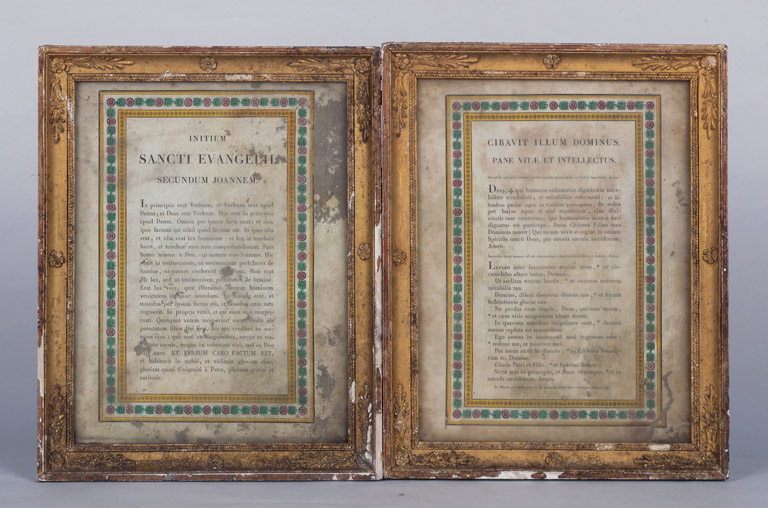 INITIUM
SANCTI EVANGELII
SECUNDUM JOANNEM.
In principio erat Verbum, et Verbum erat apud
Deum, et Deus erat Verbum. Hoc erat in principio
apud Deum. Omnia per ipsum facta sunt; et sine
ipso factum est nihil quod factum est. In ipso vita
erat, et vita erat lux hominum; et lux in tenebris
lucet, et tenebræ eam non comprehenderunt. Fuit
homo missus a Deo, cui nomen erat Joannes. Hic
venit in testimonium, ut testimonium perhiberet de
lumine, ut omnes crederent per illum. Non erat
ille lux, sed ut testimonium perhiberet de lumine.
Erat lux vera, quæ illuminat omnem hominem
venientem in hunc mundum. In mundo erat, et
mundus per ipsum factus est, et mundus eum non
cognovit. In propria venit, et sui eum non recepe-
runt. Quotquot autem receperunt eum, dedit eis
potestatem filios Dei fieri, his qui credunt in no-
mine ejus: qui non ex sanguinibus, neque ex vo-
carnis, neque ex voluntate viri, sed ex Deo
sunt. ET VERBUM CARO FACTUM EST,
et habitavit in nobis; et vidimus gloriam ejus,
gloriam quasi Unigeniti à Patre, plenum gratiæ et
veritatis.
CIBAVIT ILLUM DOMINUS
PANE VITÆ ET INTELLECTUS.
Deus, qui humanæ substantiæ dignitatem mira-
biliter condidisti, et mirabiliùs reformasti; da
nobis per hujus aquæ et vini mysterium, ejus divi-
nitatis esse consortes, qui humanitatis nostræ fieri
dignatus est particeps, Jesus Christus Filius tuus
Dominus noster; Qui tecum vivit et regnat in unitate
Spiritûs sancti Deus, per omnia sæcula sæculorum.
Amen.
Lavabo inter innocentes manus meas, * et cir-
cumdabo altare tuum, Domine.
Ut audiam vocem laudis, * et enarrem universa
mirabilia tua.
Domine, dilexi decorem domûs tuæ, * et locum
habitationis gloriæ tuæ.
Ne perdas cum impiis, Deus, animam meam,
* et cum viris sanguinum vitam meam.
In quorum manibus iniquitates sunt, * dextera
eorum repleta est muneribus.
Ego autem in innocentiâ meâ ingressus sum:
* redime me, et miserere mei.
Pes meus stetit in directo; * in Ecclesiis benedi-
cam te, Domine.
Gloria Patri et Filio, * et Spiritui Sancto;
Sicut erat in principio, et nunc et semper, * et in
sæcula sæculorum. Amen.